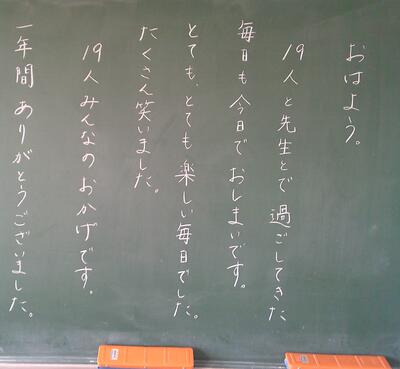 おはよう。
19人と先生とで過ごしてきた
毎日も今日でおしまいです。
とても、とても楽しい毎日でした。
たくさん笑いました。
19人みんなのおかげです。
一年間ありがとうございました。